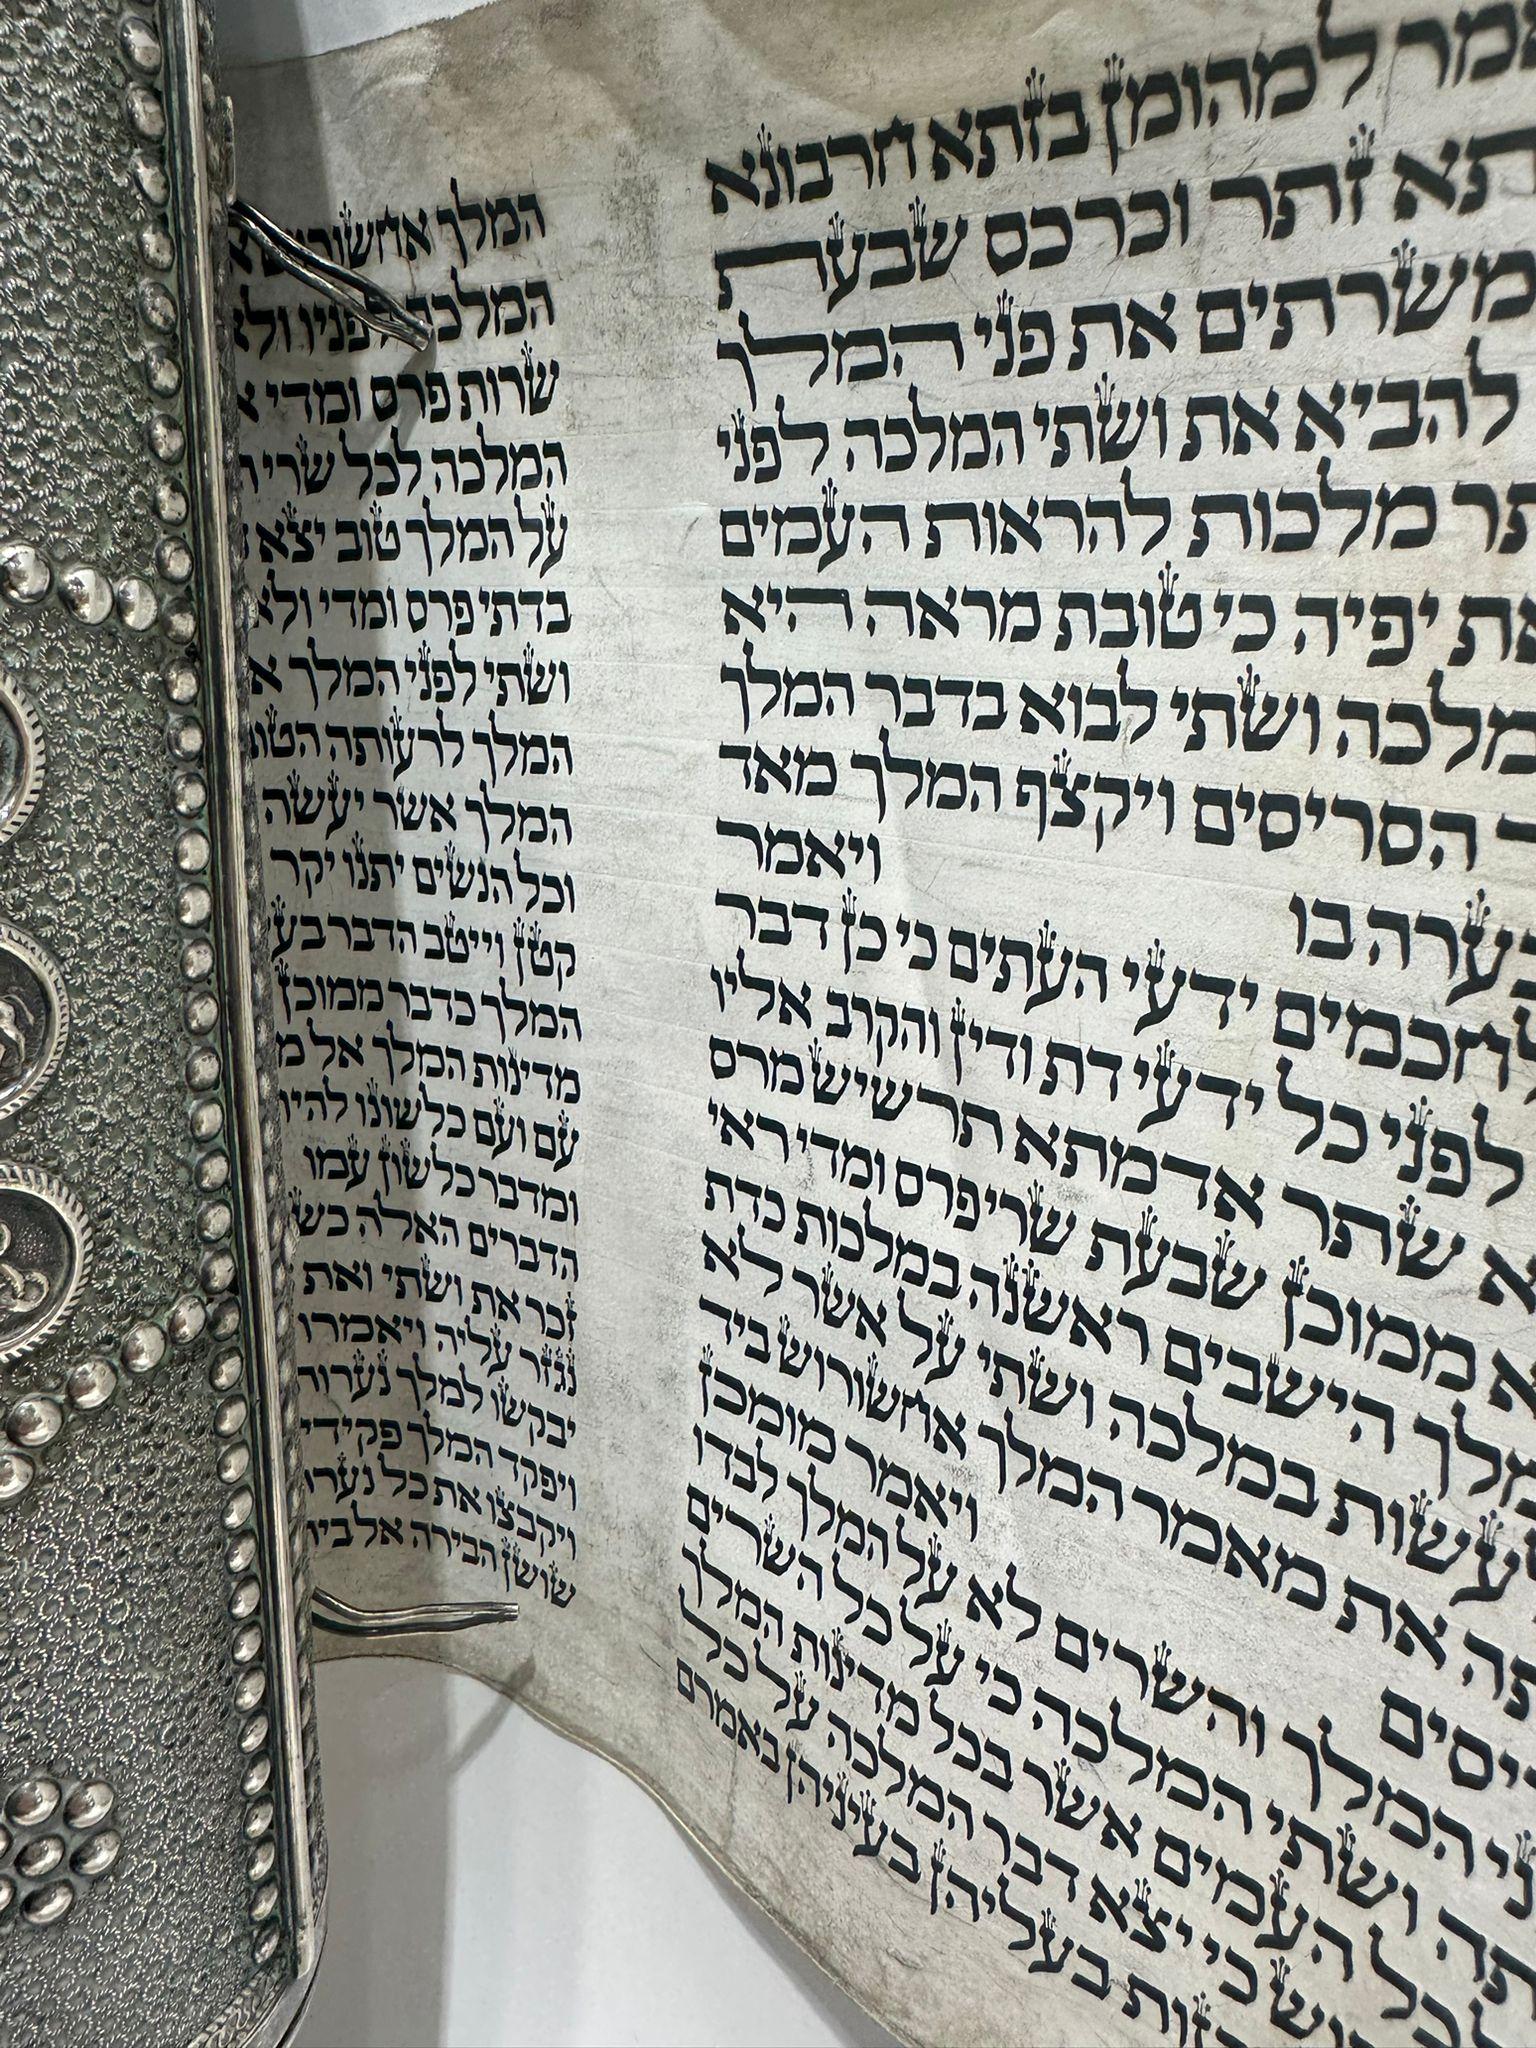 אמר למהומן בזתא חרבונא
זתר וכרכס שבעת
משרתים את פני המלך
להביא את ושתי המלכה לפני
מלכות להראות העמים
יפיה כי טובת מראה היא
ושתי לבוא בדבר המלך
הסריסים ויקצף המלך מאד
בערה בו ויאמר
לחכמים ידעי העתים כי כן דבר
לפני כל ידעי דת ודין והקרב אליו
שתר אדמתא תרשיש מרס
ממוכן שבעת שרי פרס ומדי ראי
הישבים ראשנה במלכות כדת
במלכה ושתי על אשר לא
את מאמר המלך אחשורוש ביד
ויאמר מומכן
המלך והשרים לא על המלך לבדו
ושתי המלכה כי על כל השרים
העמים אשר בכל מדינות המלך
כי יצא דבר המלכה על כל
בעליהן בעיניהן באמרם
המלך אחשורוש
המלכה לפניו
שרות פרס ומדי
המלכה לכל שרי
על המלך טוב יצא
בדתי פרס ומדי ולא
ושתי לפני המלך
המלך לרעותה
המלך אשר יעשה
וכל הנשים יתנו יקר
קטן וייטב הדבר
המלך כדבר ממוכן
מדינות המלך אל
עם ועם כלשונו
ומדבר כלשון עמו
הדברים האלה
זכר את ושתי ואת
נגזר עליה ויאמרו
יבקשו למלך
ויפקד המלך
ויקבצו את כל
שושן הבירה אל בית